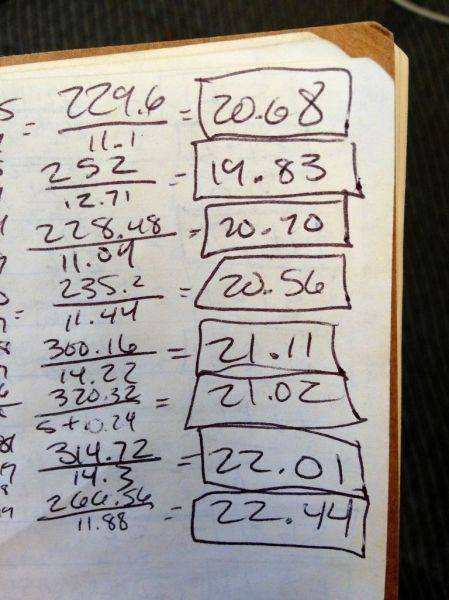 229.6
= = 20.68
11.1
252
= 19.83
12.71
228.48
= 20.70
11.04
235.2
= = 20.56
11.44
300.16
= 21.11
14.22
320.32
= 21.02
5+10.24
314.72
= 22.01
14.3
266.56
= 22.44
11.88